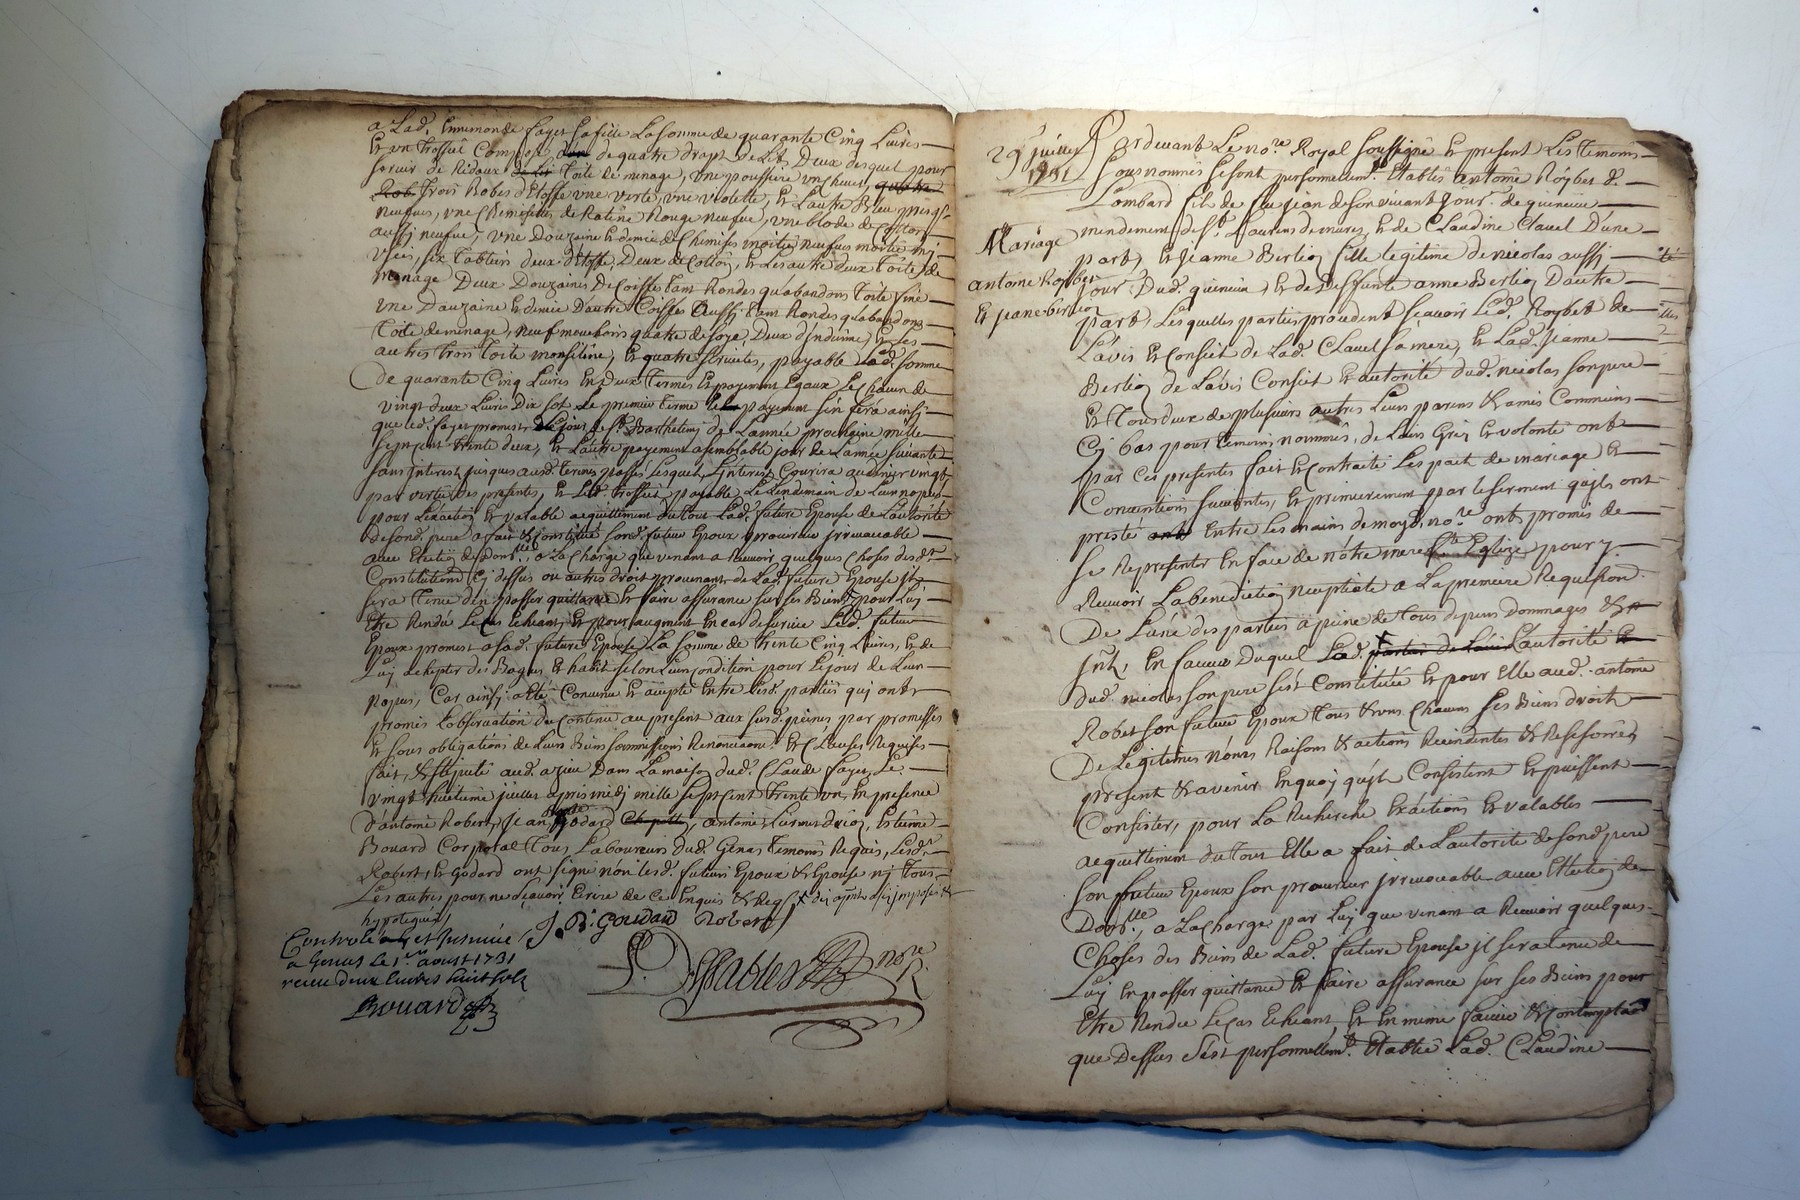 a Lad. Ennemonde fayet sa fille La somme de quarante Cinq Livres
Et un trossel Composé de quatre drapt de Lit, Deux desquel pour
servir de Rideaux Toile de menage, une poussiere un chevet,
Trois Robes d'Etoffe une verte, une violette, & Lautre Bleu presqs.
neufues, une Chemisette de Ratine Rouge neufue, une blode de Cotton
aussi neufue, une Douzaine & demie de Chemises moitié neufues moitié my
Usées, six Tabliers deux d'Etoffe, Deux de Cotton, & Les autre deux Toile de
menage Deux Douzaines de Coiffe tant Rondes qu'abandons Toile fine
une Douzaine & demie D'autre Coiffes Aussy tant Rondes qu'abandons
Toile de menage, neuf mouchoirs quatre de soye, Deux d'indienne, & Les
autres trois Toile monseline, & quatre serviettes, payable Lad. somme
De quarante Cinq Livres En Deux Termes & payement Egaux Le Chacun de
vingt deux Livres Dix sol Le premier terme payement s'en fera ainsi
que led. fayet promet Le jour de st. Barthelemy de L'année prochaine mille
sept cent trente deux, & L'autre payement a semblable jour de L'année suivante
sans interest jusques ausd. termes passés Lesquels, L'interest Courira au denier vingt
par vertu des presentes, & Led. trossel payable Le Lendemain de Leur nopces
pour L'exaction & valable acquittement du tout Lad. future Epouse de L'autorité
de sond. pere a fait & Constitué sond. futur Epoux procureur irrevocable
avec Election de dom.lle, a La Charge que venant a Recevoir quelques Choses desd.
Constitutions Cy dessus ou autres droit provenant de Lad. future Epouse il
sera Tenu d'en passer quittance & faire assurance sur ses Biens pour Luy
Etre Rendu Le Cas Echeant, & pour augment En cas de survie Led. futur
Epoux promet a sad. future Epouse La somme de trente Cinq Livres, & de
Luy acheter des Bagues & habit selon Leur Condition pour Le jour de Leur
nopces, Car ainsy a Eté Convenu & accepté Entre Lesd. parties qui ont
promis L'observation du Contenu au present aux susd. peines par promesses
& sous obligations de Leurs Biens soumissions Renonciaons. & Clauses Requises
fait & stipulé aud. azieu Dans La maison dud. Claude fayet, Le
vingt huitieme juillet apres midy mille sept cent trente un, En presence
D'antoine Robert, Jean Bpte Godard, antoine, Estienne
Bouard Corporal Tous Laboureurs dud. Genas Temoins Requis, Lesd.
Robert, & Godard ont signé non lesd. futurs Epoux & Epouse ny Tous
Les autres pour ne sçavoir Ecrire de Ce Enquis & Requis
hypoteques
J. B. Goudard Robert
Controlé et Insinué
a Genas le 1er aoust 1731
receu deux Livres huit sols
Bouard
Dessables nore R.
29 juillet
1731
Mariage
antoine Roybet
Et jeane berlioz
Pardevant Le nore. Royal soussigné & present Les temoins
sousnommés se sont personnelemt. Etablis antoine Roybet d.
Lombard fils de feu jean de son vivant Jour. de quineux
mendement de St. Laurens de mures, & de Claudine Clavel D'une
part, Et Jeanne Berlioz fille Legitime de nicolas aussi
jour. Dud. quineux, & de Deffunte anne Berlioz D'autre
part, Lesquelles parties procedent sçavoir Led. Roybet de
L'avis & Conseil de Lad. Clavel sa mere, & Lad. Jeanne
Berlioz de L'avis Conseil & autorité dud. nicolas son pere
& tous deux de plusieurs autres Leurs parens & amis Communs
Cy bas pour temoins nommés, de Leurs Gréz & volonté ont
par Ces presentes fait & Contraité Les pacts de mariage &
Conventions suivantes, & premierement par Le serment qu'ils ont
presté Entre Les mains de moyd. nore ont promis de
se Representer En face de nôtre mere ste. Eglize, pour y
Recevoir La benediction neuptiale a La premiere Requision
De L'une des parties a peine de tous depens Dommages &
Jnth, En faveur Duquel Lad. L'autorité
dud. nicolas son pere s'est Constituée & pour Elle aud. antoine
Robet son futur Epoux Tous & uns Chacuns Ses Biens droits
De Legitimes noms Raisons & actions Recindentes & Rescisoires
present & avenir En quoy qu'ils Consistent & puissent
Consister, pour La Recherche Exactions & valables
acquittement du tout Elle a fait de L'autorité de sond. pere
son futur Epoux son procureur irrevocable avec Election de
Dom.lle, a La Charge par Luy que venant a Recevoir quelques
Choses des Biens de Lad. future Epouse il sera tenu de
Luy En passer quittance & faire assurance sur ses Biens pour
Etre Rendu Le Cas Echeant, & En meme faveur & Contemplaon
que Dessus s'est personnellemt. Etablie Lad. Claudine